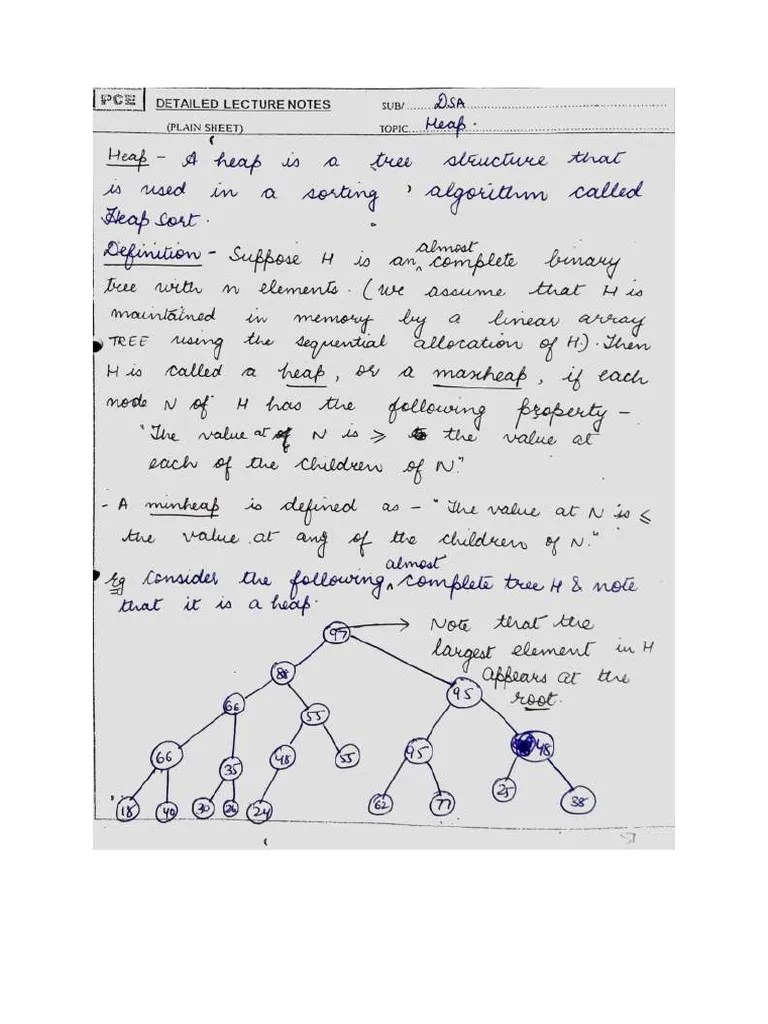 PCE DETAILED LECTURE NOTES SUB/ DSA
(PLAIN SHEET) TOPIC Heap.
Heap - A heap is a tree structure that
is used in a sorting algorithm called
Heap Sort.
Definition - Suppose H is an almost complete binary
tree with n elements. (We assume that H is
maintained in memory by a linear array
TREE using the sequential allocation of H.) Then
H is called a heap, or a maxheap, if each
node N of H has the following property -
"The value at N is ≥ the value at
each of the children of N."
- A minheap is defined as - "The value at N is ≤
the value at any of the children of N."
Eg Consider the following almost complete tree H & note
that it is a heap.
97 → Note that the
largest element in H
88 appears at the
95
root.
66 55
66 35 48 55 95 48
18 40 30 26 24 62 77 25 38